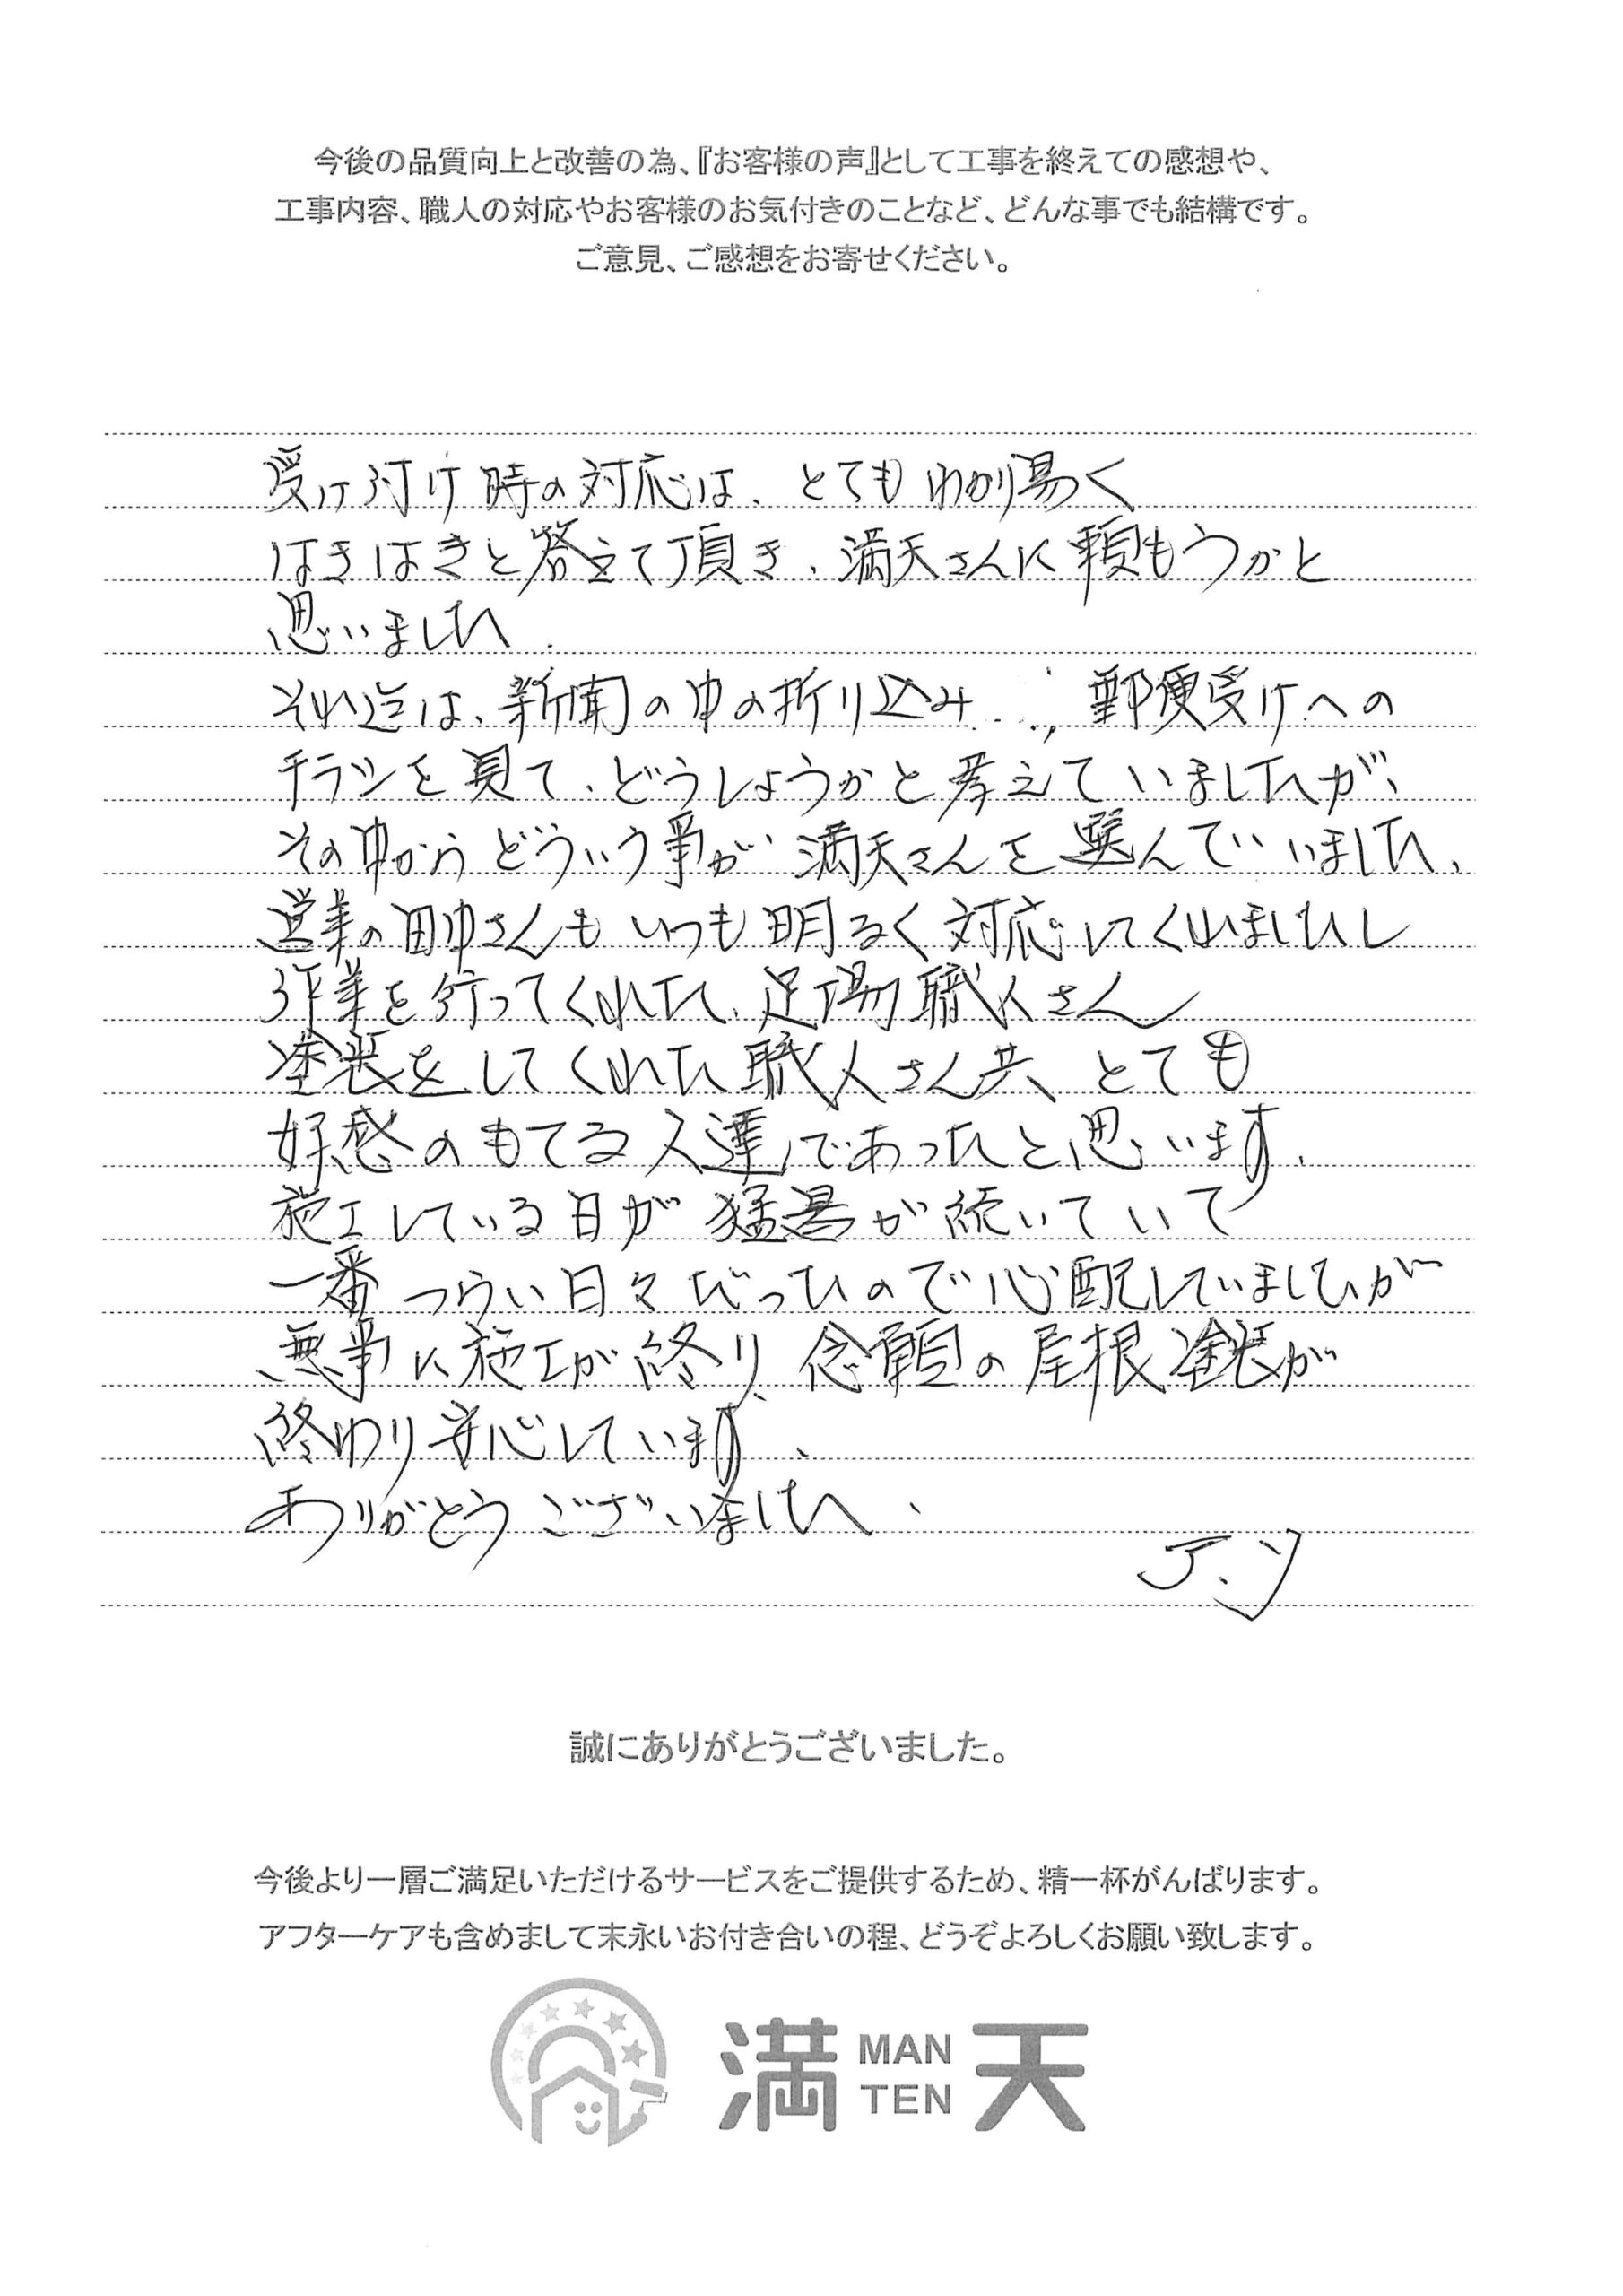 今後の品質向上と改善の為、『お客様の声』として工事を終えての感想や、
工事内容、職人の対応やお客様のお気付きのことなど、どんな事でも結構です。
ご意見、ご感想をお寄せください。
受け付け時の対応は、とてもわかり易く
はきはきと答えて頂き、満天さんに頼もうかと
思いました.
それ迄は、新聞の中の折り込み、郵便受けへの
チラシを見て、どうしようかと考えていましたが、
その中からどういう事か満天さんを選んでいました、
営業の田中さんもいつも明るく対応してくれましたし
作業を行ってくれた、足場職人さん
塗装をしてくれた職人さん共、とても
好感のもてる人達であったと思います.
施工している日が猛暑が続いていて
一番つらい日々だったので心配していましたが
無事に施工が終り、念願の屋根塗装が
終わり安心しています、
ありがとうございました、
ア、ソ
誠にありがとうございました。
今後より一層ご満足いただけるサービスをご提供するため、精一杯がんばります。
アフターケアも含めまして末永いお付き合いの程、どうぞよろしくお願い致します。
満 MAN TEN 天